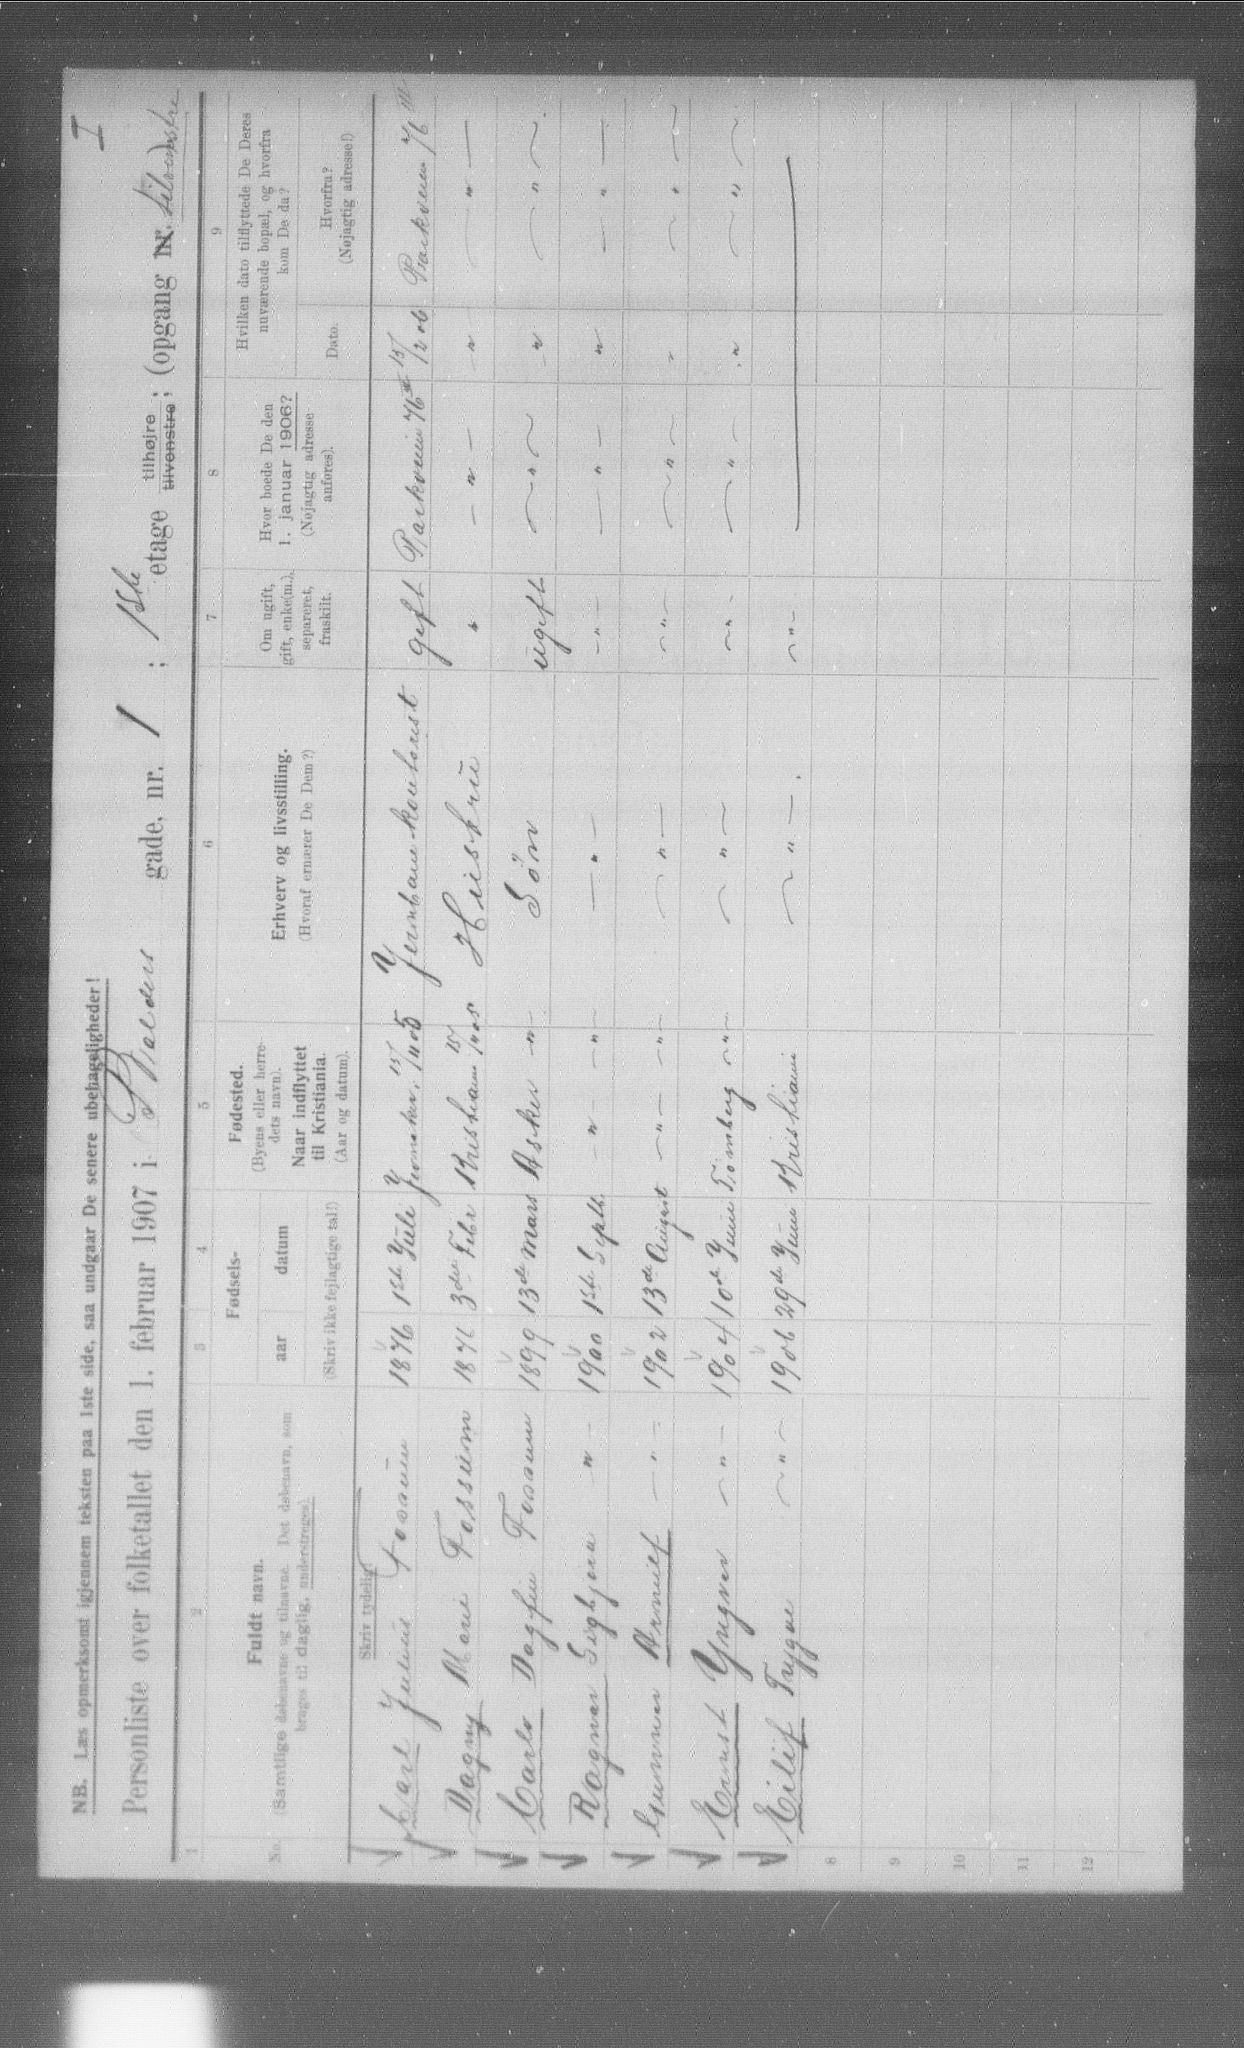 I
NB. Læs opmerksomt igjennem teksten paa 1ste side, saa undgaar De senere ubehageligheder!
Personliste over folketallet den 1. februar 1907 i Balders gade, nr. 1 ; 1ste etage tilhøjre tilvenstre ; (opgang nr. tilvenstre)
1 2 3 4 5 6 7 8 9
No. Fuldt navn. (Samtlige døbenavne og tilnavne. Det døbenavn, som bruges til daglig, understreges).
Fødsels-
aar datum
(Skriv ikke fejlagtige tal!)
Fødested. (Byens eller herredets navn). Naar indflyttet til Kristiania. (Aar og datum).
Erhverv og livsstilling. (Hvoraf ernærer De Dem?)
Om ugift, gift, enke(m.), separeret, fraskilt.
Hvor boede De den 1. januar 1906? (Nøjagtig adresse anføres).
Hvilken dato tilflyttede De Deres nuværende bopæl, og hvorfra kom De da?
Dato. Hvorfra? (Nøjagtig adresse!)
Skriv tydelig!
Carl Julius Fossum 1876 1ste Juli 15/1405 Jernbanekontorist gift Parkveien 76 15/2 06 Parkveien 76 III
Dagny Marie Fossum 1876 3die Febr Kristiania 15/1405 Hustru " — " — " — " —
Carlo Dagfin Fossum 1899 13de Mars Asker — " — Søn ugift — " — " — " —
Ragnar Sigbjørn — " — 1900 1ste Septb. — " — — " — — " — — " — — " — " — " —
Gunnar Arnulf — " — 1902 13de August — " — — " — — " — — " — — " — " — " —
Ernst Yngvar — " — 1904 10de Juni Tömberg — " — — " — — " — — " — " — " —
Eilif Trygve — " — 1906 29de Juni Kristiania — " — — " —
8
9
10
11
12